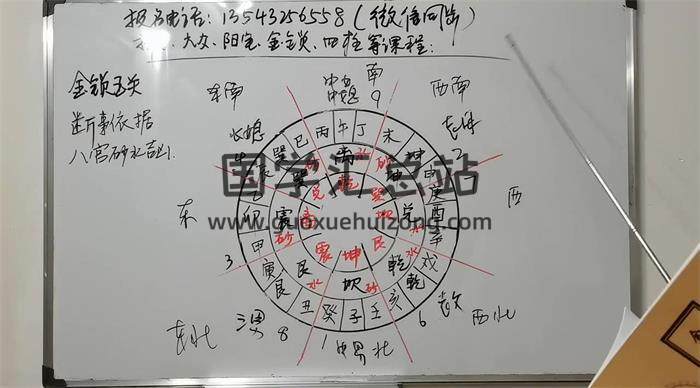 报名电话: 13543256558 (微信同步)
大六、阳宅、金锁、四柱等课程:
金锁玉关
断事依据
八宫砂水吉凶
东南
中女
南
9
西南
老母
2
西
7
长媳
东
3
东北
三男
8
1
中男
北
6
老父
西北
巳
丙
午
丁
未
坤
申
庚
酉
辛
戌
乾
亥
壬
子
癸
丑
艮
寅
甲
卯
辰
巽
离
坤
兑
乾
坎
艮
震
巽
乾
巽
坎
艮
坤
震
离
兑
砂
水
国学汇总站
www.guoxuehuizong.com